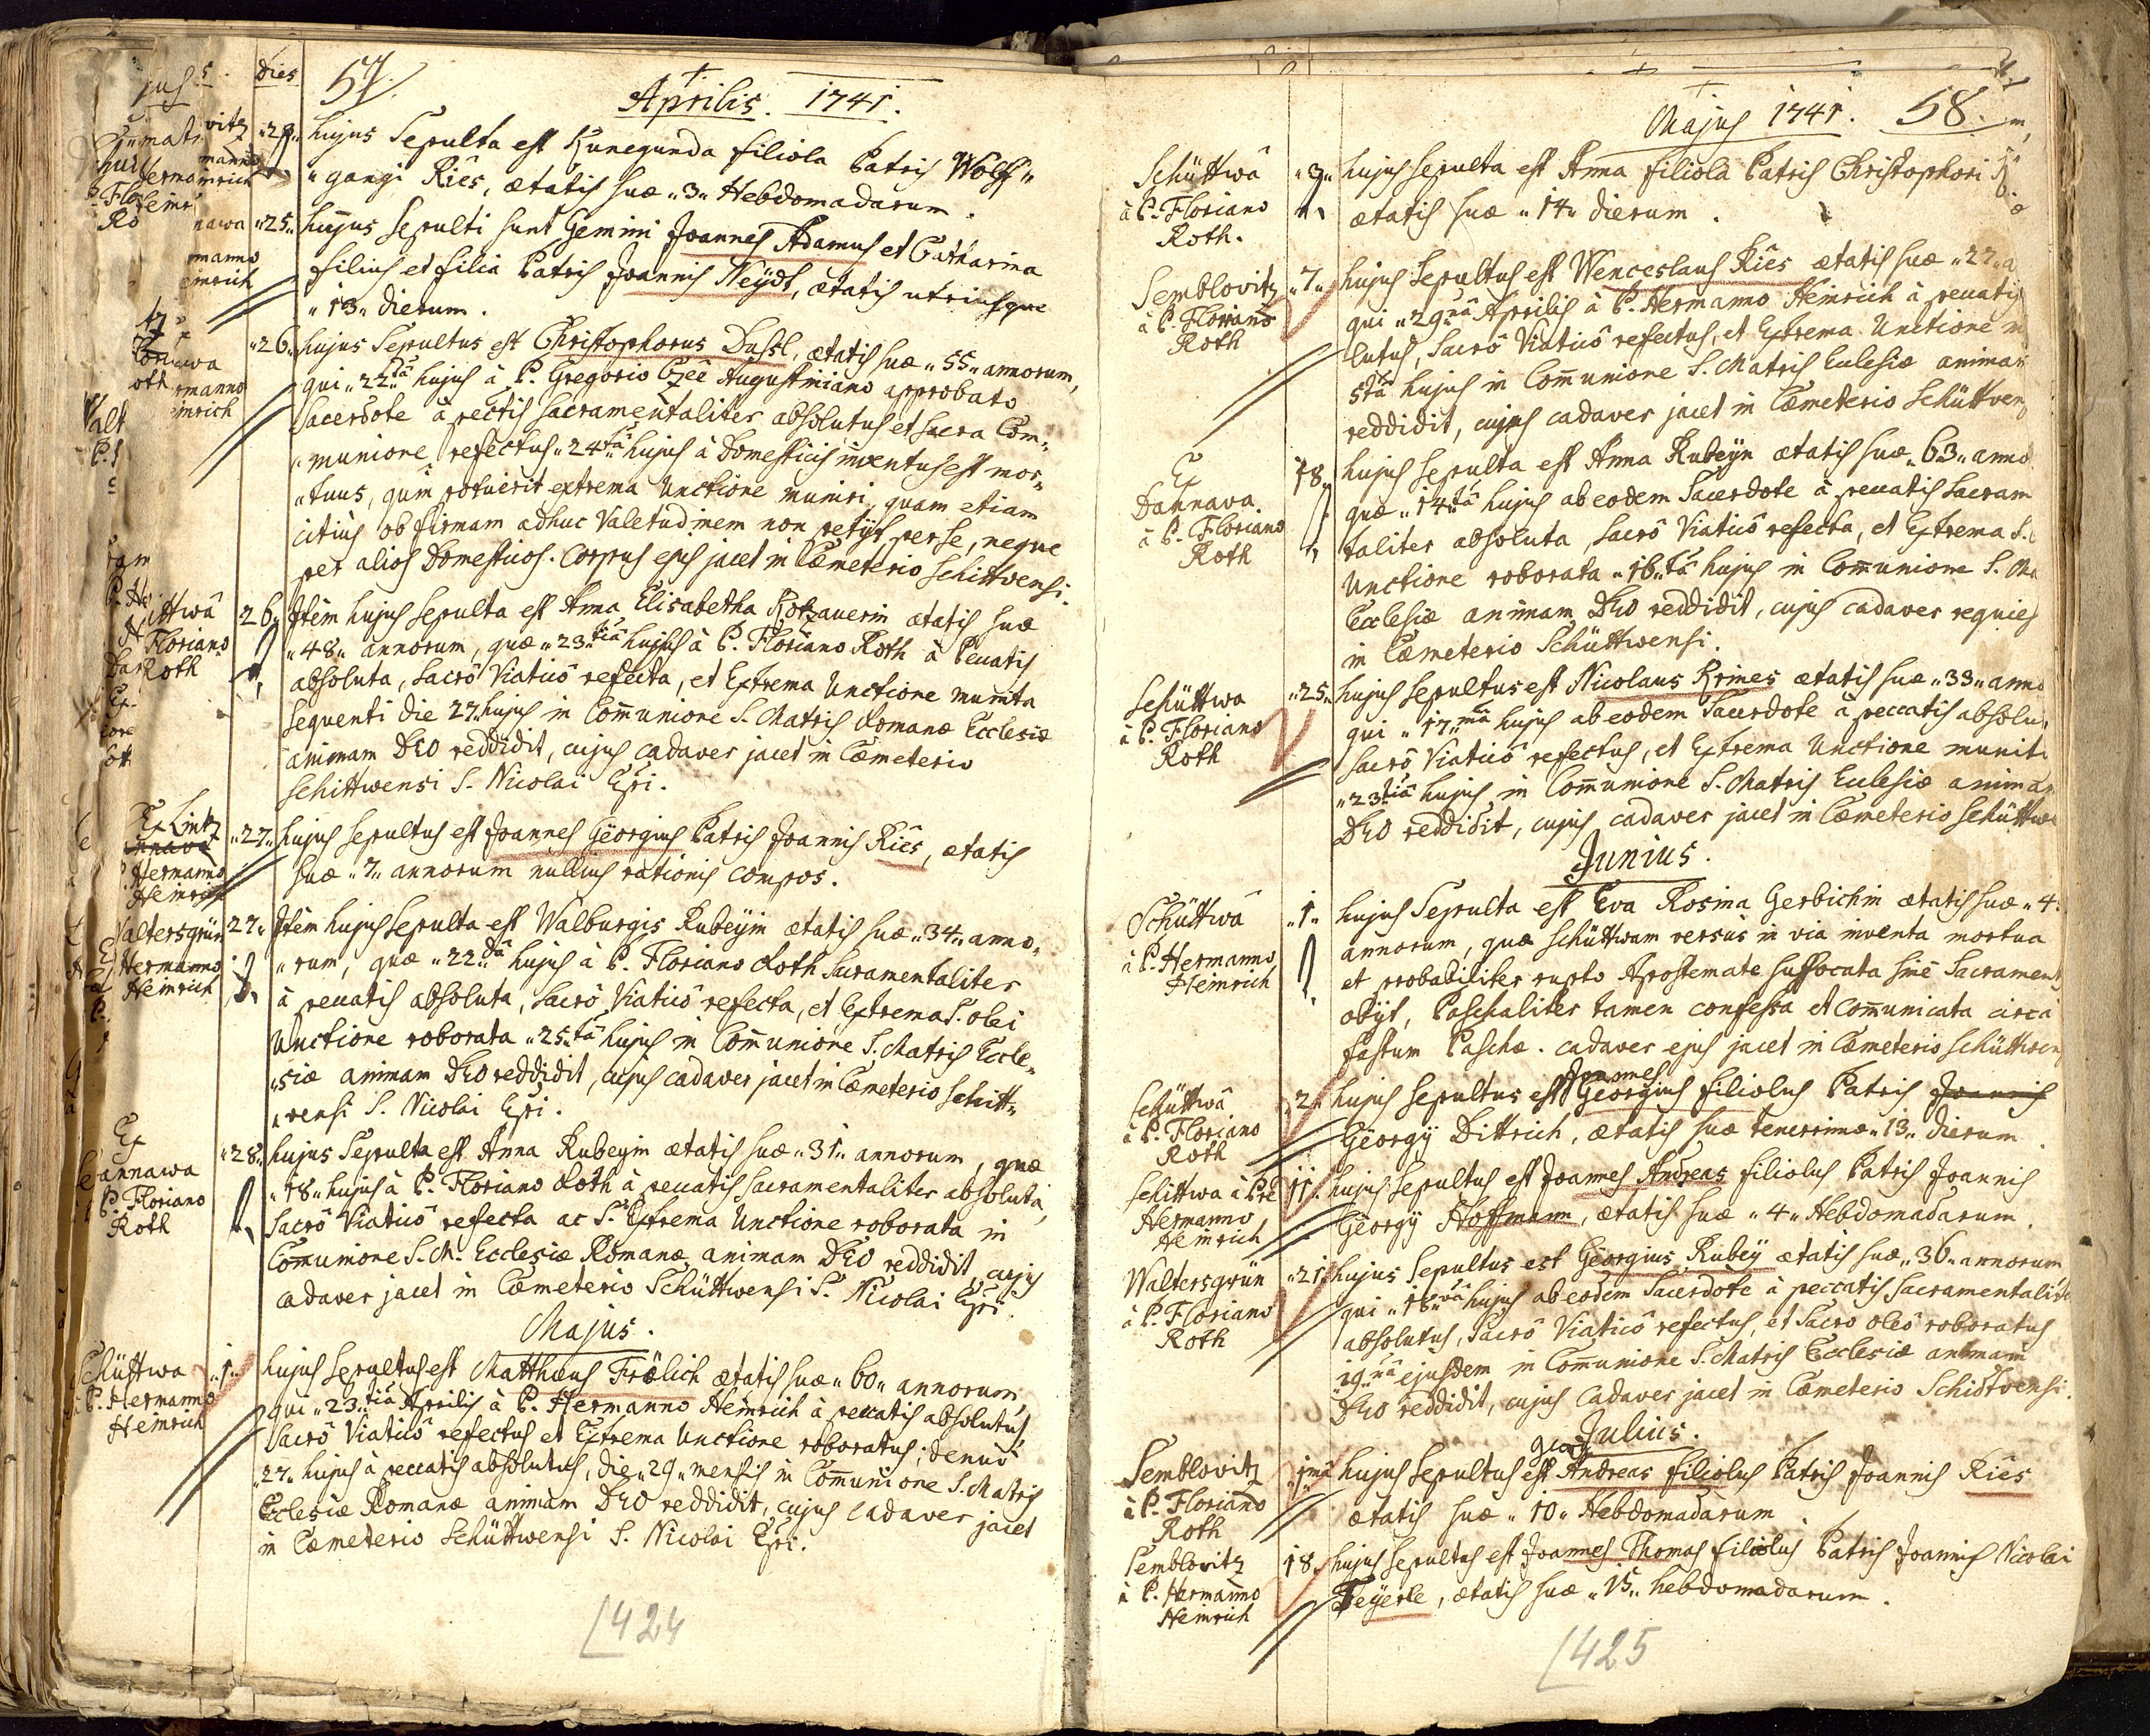 Dies
57
Aprilis. 1741.
hujus Sepulta est Kunegunda filiola Patris Wolff„
„gangi Riês, ætatis suæ „3„ Hebdomadarum.
„25„ hujus sepulti sunt Gemini Joannes Adamus et Catharina
filius et filia Patris Joannis Neÿdt, ætatis utriusque
„13„ dierum.
„26„ hujus Sepultus est Christophorus Dussl, ætatis suæ „55„ annorum,
qui „22„da hujus à P. Gregorio Augustiniano approbato
Sacerdote à pectis sacramentaliter absolutus et sacra Com„
„munione refectus „24„ta hujus à Domesticis inventus est mor„
„tuus, quin potuerit extrema Unctione muniri, quam etiam
citius ob firmam adhuc Valetudinem non petÿt per se, neque
per alios Domesticos. Corpus ejus jacet in Cæmeterio Schittvensi.
ittwâ
Floriano
Roth
26„ Item hujus sepulta est Anna Elisabetha Kotzauerin ætatis suæ
„48„ annorum, quæ „23„tia hujus à P. Floriano Roth à Pecatis
absoluta, Sacrô Viaticô refecta, et Extrema Unctione munita
sequenti die 27„ hujus in Com̄unione S. Matris Romanæ Ecclesiæ
animam DEO reddidit, cujus cadaver jacet in Cæmeterio
Schittwensi S. Nicolai Epi.
Ex Lintz
Hermanno
Heinrich
„27„ hujus sepultus est Joannes Georgius Patris Joannis Riês, ætatis
suæ „7„ annorum nullius rationis compos.
Waltersgrün
Hermanno
Heinrich
27„ Item hujus sepulta est Walburgis Rubeyin ætatis suæ „34„ anno„
„rum, quæ „22„da hujus à P. Floriano Roth Sacramentaliter
à pecatis absoluta, Sacrô Viaticô refecta, et Extrema S. olei
Unctione roborata „25„ta hujus in Com̄unione S. Matris Eccle„
„siæ animam DEO reddidit, cujus cadaver jacet in Cæmeterio Schitt„
„vensi S. Nicolai Epi.
Ex
annawa
P. Floriano
Roth
„28„ hujus Sepulta est Anna Rubeyin ætatis suæ „31„ annorum, quæ
„18„ hujus à P. Floriano Roth à pecatis Sacramentaliter absoluta,
Sacrô Viaticô refecta ac S. Extrema Unctione roborata in
Com̄unione S. M. Ecclesiæ Romanæ animam DEO reddidit, cujus
cadaver jacet in Cæmeterio Schüttwensi S. Nicolai Epi.
Majus.
Schüttwa
à P. Hermanno
Heinrich
„1„ hujus sepultus est Matthæus Frölich ætatis suæ „60„ annorum,
qui „23„tia Aprilis à P. Hermanno Heinrich à pecatis absolutus,
Sacrô Viaticô refectus et Extrema Unctione roboratus; denuò
„27„ hujus à peccatis absolutus, die „29„ mensis in Com̄unione S. Matris
Ecclesiæ Romanæ animam DEO reddidit, cujus cadaver jacet
in Cæmeterio Schüttwensi S. Nicolai Epi.
424
Majus 1741. 58.
Schüttwâ
à P. Floriano
Roth.
„3„ hujus sepulta est Anna filiola Patris Christophori
ætatis suæ „14„ dierum.
Semblovitz
à P. Floriano
Roth
„7„ hujus sepultus est Wenceslaus Riês ætatis suæ „22„ a
qui „29„na Aprilis à P. Hermanno Heinrich à pecatis
lutus, Sacrô Viaticô refectus, et Extrema Unctione
5ta hujus in Com̄unione S. Matris Eclesiæ animam
reddidit, cujus cadaver jacet in Cæmeterio Schüttvens
Ex
Dannava
à P. Floriano
Roth
18„ hujus sepulta est Anna Rubeyn ætatis suæ „63„ anno
quæ „14„ta hujus ab eodem Sacerdote à pecatis Sacram
taliter absoluta, Sacrô Viaticô refecta, et Extrema S.
Unctione roborata „16„ta hujus in Com̄unione S. Ma
Ecclesiæ animam DEO reddidit, cujus cadaver requies
in Cæmeterio Schüttwensi.
Schüttwa
à P. Floriano
Roth
„25„ hujus sepultus est Nicolaus Krimes ætatis suæ „33„ anno
qui „17„ma hujus ab eodem Sacerdote à peccatis absolu
Sacrô Viaticô refectus, et Extrema Unctione munit
„23„tia hujus in Com̄unione S. Matris Eclesiæ animam
DEO reddidit, cujus cadaver jacet in Cæmeterio Schüttw
Junius.
Schüttwâ
à P. Hermanno
Heinrich
„1„ hujus Sepulta est Eva Rosina Gerbichin ætatis suæ „4
annorum, quæ Schüttwam versùs in via inventa mortua
et probabiliter rupto Apostemate suffocata sine Sacrament
obÿt, Paschaliter tamen confessa et Com̄unicata circa
festum Paschæ. cadaver ejus jacet in Cæmeterio Schüttwens
Schüttwâ
à P. Floriano
Roth
Joannes
„2„ hujus sepultus est Georgius filiolus Patris Joannis
Georgÿ Dittrich, ætatis suæ tenerrimæ „13„ dierum.
Schittwa à Pre
Hermanno
Heinrich
11„ hujus sepultus est Joannes Andreas filiolus Patris Joannis
Georgÿ Hoffmann, ætatis suæ „4„ Hebdomadarum.
Waltersgrün
à P. Floriano
Roth
„21„ hujus Sepultus est Georgius Rubeÿ ætatis suæ „36„ annorum
qui „18„va hujus ab eodem Sacerdote à peccatis Sacramentalite
absolutus, Sacrô Viaticô refectus, et Sacro oleô roboratus
19„na ejusdem in Com̄unione S. Matris Ecclesiæ animam
DEO reddidit, cujus Cadaver jacet in Cæmeterio Schidtvensi.
Julius.
Semblovitz
à P. Floriano
Roth
Georg
1ma hujus sepultus est Andreas filiolus Patris Joannis Riês
ætatis suæ „10„ Hebdomadarum
Semblovitz
à P. Hermanno
Heinrich
18„ hujus sepultus est Joannes Thomas filiolus Patris Joannis Nicolai
Feyerle, ætatis suæ „15„ hebdomadarum.
425